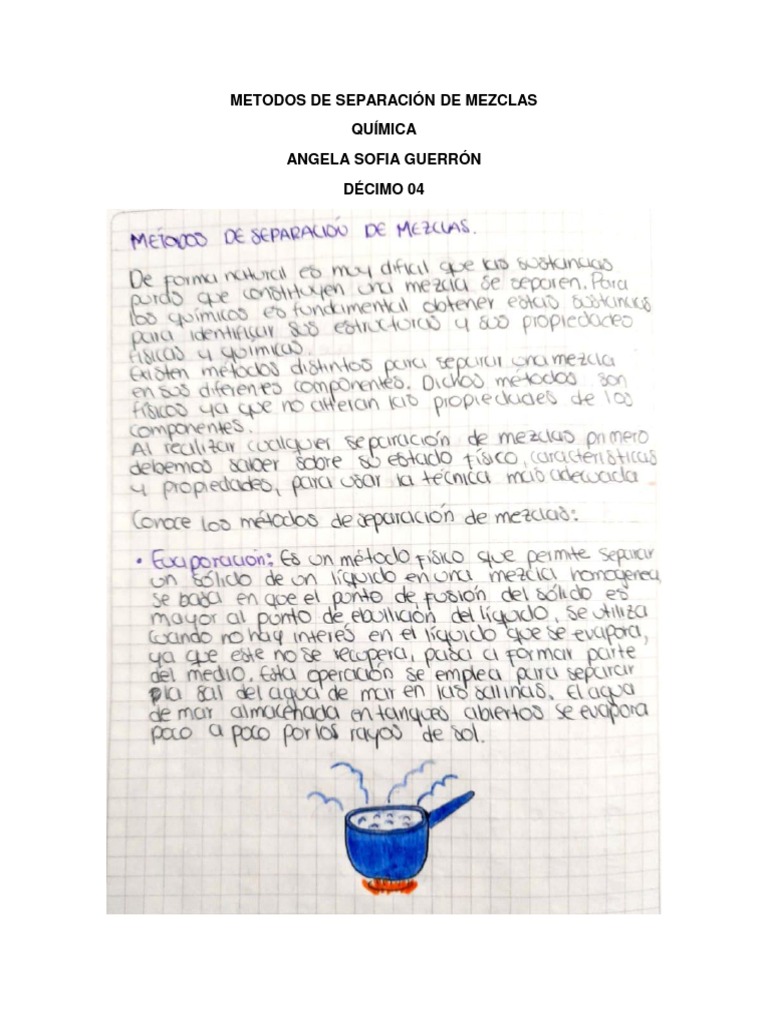 METODOS DE SEPARACIÓN DE MEZCLAS
QUÍMICA
ANGELA SOFIA GUERRÓN
DÉCIMO 04
METODOS DE SEPARACIÓN DE MEZCLAS.
De forma natural es muy dificil que las sustancias
puras que constituyen una mezcla se separen. Para
los químicos es fundamental obtener estas sustancias
para identificar sus estructuras y sus propiedades
físicas y químicas.
Existen métodos distintos para separar una mezcla
en sus diferentes componentes. Dichos métodos son
físicos ya que no alteran las propiedades de los
componentes.
Al realizar cualquier separación de mezclas primero
debemos saber sobre su estado físico, características
y propiedades, para usar la técnica mas adecuada
Conoce los métodos de separación de mezclas:
• Evaporación: Es un método físico que permite separar
un sólido de un líquido en una mezcla homogenea,
se basa en que el punto de fusión del sólido es
mayor al punto de ebullición del líquido. Se utiliza
cuando no hay interés en el líquido que se evapora,
ya que este no se recupera, pasa a formar parte
del medio. Esta operación se emplea para separar
la sal del agua de mar en las salinas. El agua
de mar almacenada en tanques abiertos se evapora
poco a poco por los rayos de sol.